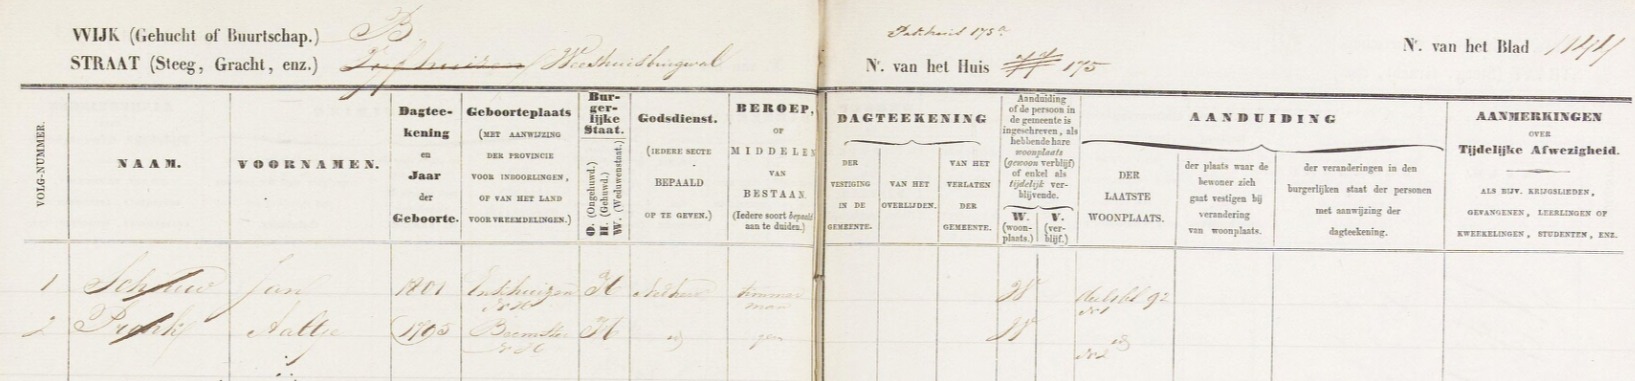 WIJK (Gehucht of Buurtschap.) B
STRAAT (Steeg, Gracht, enz.) Weeshuisburgwal
Pakhuis 175a
Nr. van het Huis 175
Nr. van het Blad
VOLG-NUMMER.
NAAM.
VOORNAMEN.
Dagtee-
kening
en
Jaar
der
Geboorte.
Geboorteplaats
(MET AANWIJZING
DER PROVINCIE
VOOR INBOORLINGEN,
OF VAN HET LAND
VOOR VREEMDELINGEN.)
Bur-
ger-
lijke
Staat.
O. (Ongehuwd.)
H. (Gehuwd.)
W. (Weduwenstaat.)
Godsdienst.
(IEDERE SECTE
BEPAALD
OP TE GEVEN.)
BEROEP,
OF
MIDDELEN
VAN
BESTAAN.
(Iedere soort bepaald
aan te duiden.)
DAGTEEKENING
DER
VESTIGING
IN DE
GEMEENTE.
VAN HET
OVERLIJDEN.
VAN HET
VERLATEN
DER
GEMEENTE.
Aanduiding
of de persoon in
de gemeente is
ingeschreven, als
hebbende hare
woonplaats
(gewoon verblijf)
of enkel als
tijdelijk ver-
blijvende.
W.
(woon-
plaats.)
V.
(ver-
blijf.)
AANDUIDING
DER
LAATSTE
WOONPLAATS.
der plaats waar de
bewoner zich
gaat vestigen bij
verandering
van woonplaats.
der veranderingen in den
burgerlijken staat der personen
met aanwijzing der
dagteekening.
AANMERKINGEN
OVER
Tijdelijke Afwezigheid.
ALS BIJV. KRIJGSLIEDEN,
GEVANGENEN, LEERLINGEN OF
KWEEKELINGEN, STUDENTEN, ENZ.
1 Schouw Jan 1801 Enkhuizen H timmer
N H man
2 Pronk Aaltje 1805 Beemster H id geen
N H